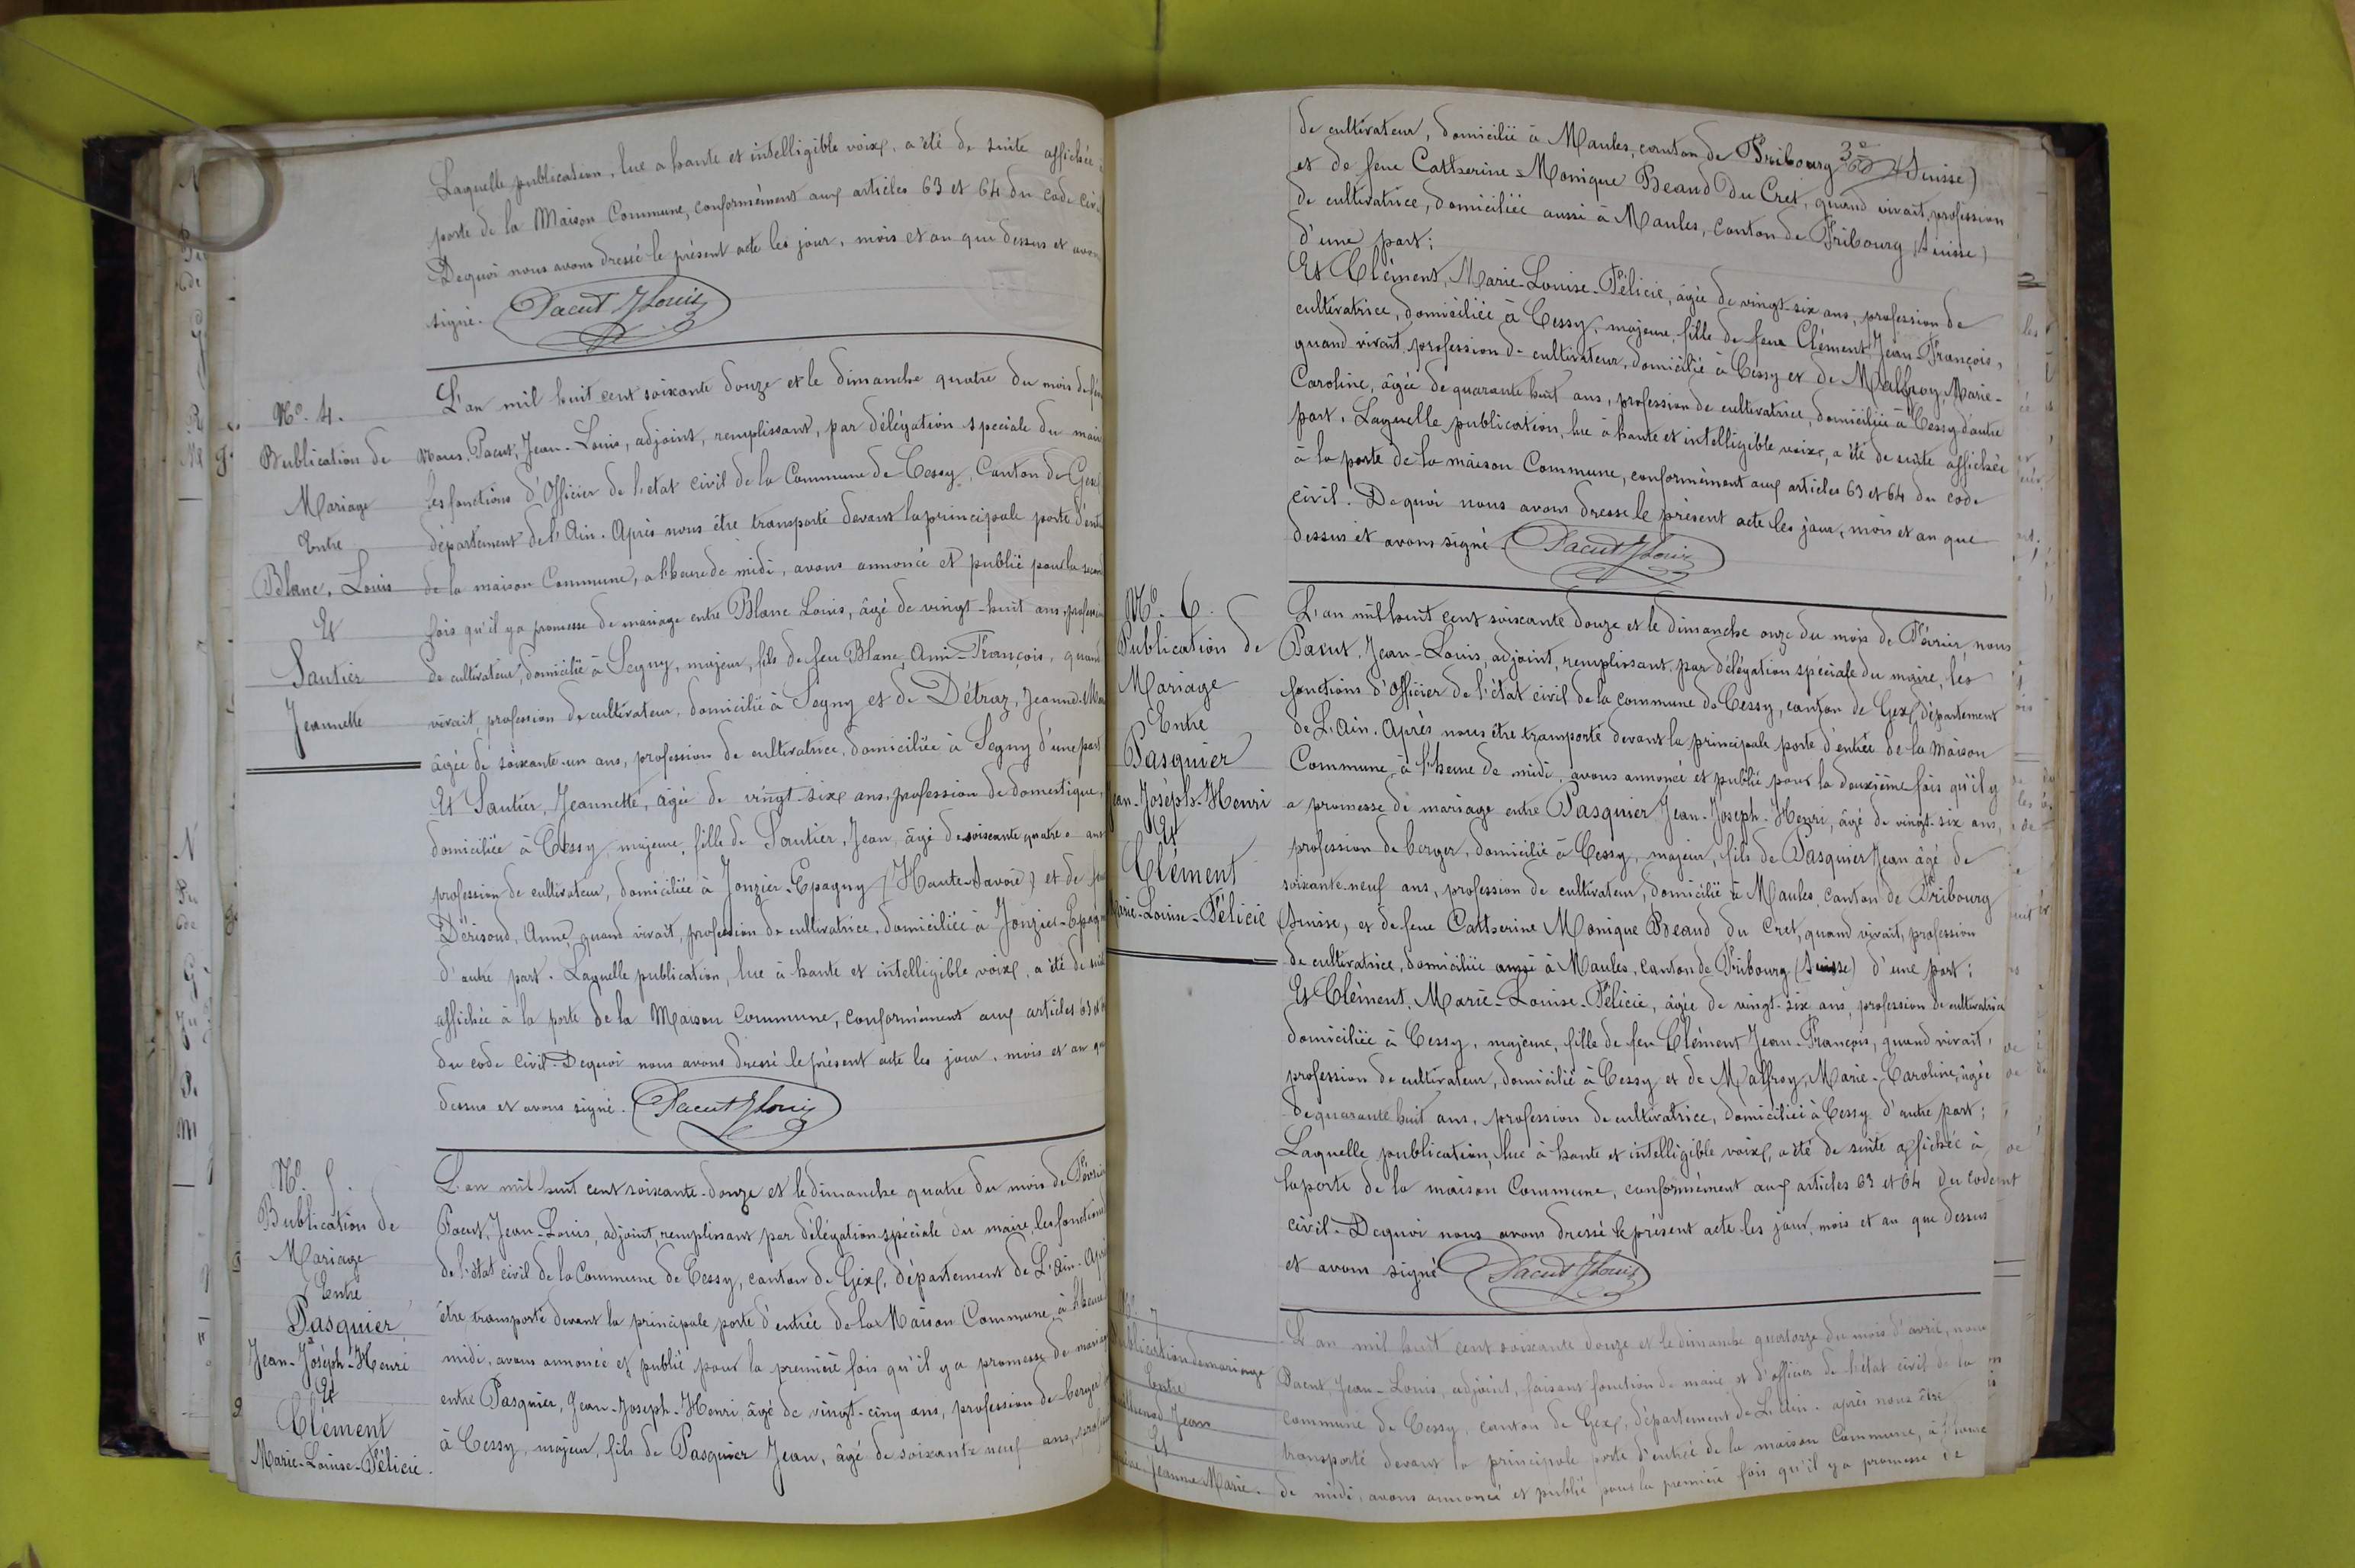 Laquelle publication, lue a haute et intelligible voix, a été de suite affichée
porte de la Maison Commune, conformément aux articles 63 et 64 du code
Dequoi nous avons dressé le présent acte les jour, mois et an que dessus et
signé. Pacut JLouis
Nº. 4.
Publication de
Mariage
Entre
Blanc, Louis
Et
Sautier
Jeannette
L'an mil huit cent soixante douze et le dimanche quatre du mois de
Nous Pacut, Jean-Louis, adjoint, remplissant, par délégation spéciale du
les fonctions d'Officier de l'état civil de la Commune de Cessy, Canton de Gex
département de l'Ain. Après nous être transporté devant la principale porte
de la maison Commune, a l'heure de midi, avons annoncé et publié pour la
fois qu'il y a promesse de mariage entre Blanc Louis, âgé de vingt-huit ans,
de cultivateur, domicilié à Segny, majeur, fils de feu Blanc, Ami-François, quand
vivait, profession de cultivateur, domicilié à Segny et de Détraz, Jeanne
âgée de soixante-un ans, profession de cultivatrice, domiciliée à Segny d'une part
Et Sautier, Jeannette, âgée de vingt-six ans, profession de domestique,
domiciliée à Cessy, majeure, fille de Sautier, Jean, âgé de soixante quatre ans
profession de cultivateur, domiciliée à Jonzier-Epagny (Haute-Savoie) et de
Dérisoud, Anne, quand vivait, profession de cultivatrice, domiciliée à Jonzier-
d'autre part. Laquelle publication, lue à haute et intelligible voix, a été de
affichée à la porte de la Maison Commune, conformément aux articles 63 et
du code Civil. Dequoi nous avons dressé le présent acte les jour, mois et an
dessus et avons signé. Pacut JLouis
Nº. 5.
Publication de
Mariage
Entre
Pasquier,
Jean-Joseph-Henri
Et
Clément
Marie-Louise-Félicie.
L'an mil huit cent soixante-douze et le dimanche quatre du mois de
Pacut, Jean-Louis, adjoint, remplissant par délégation spéciale du maire, les
de l'état civil de la Commune de Cessy, canton de Gex, département de L'Ain.
être transporté devant la principale porte d'entrée de la Maison Commune, à
midi, avons annoncé et publié pour la première fois qu'il y a promesse de
entre Pasquier, Jean-Joseph-Henri, âgé de vingt-cinq ans, profession de berger
à Cessy, majeur, fils de Pasquier Jean, âgé de soixante neuf ans,
de cultivateur, domicilié à Maules, canton de Fribourg (Suisse)
et de feue Catherine-Monique Beaud Du Cret, quand vivait, profession
de cultivatrice, domiciliée aussi à Maules, Canton de Fribourg (Suisse)
d'une part;
Et Clément, Marie-Louise-Félicie, âgée de vingt-six ans, profession de
cultivatrice, domiciliée à Cessy, majeure, fille de feue Clément, Jean-François,
quand vivait, profession de cultivateur, domicilié à Cessy et de Malfroy, Marie-
Caroline, âgée de quarante huit ans, profession de cultivatrice, domiciliée à Cessy d'autre
part. Laquelle publication, lue à haute et intelligible voix, a été de suite affichée
à la porte de la maison Commune, conformément aux articles 63 et 64 du code
civil. Dequoi nous avons dressé le présent acte les jour, mois et an que
dessus et avons signé. Pacut JLouis
Nº. 6.
Publication de
Mariage
Entre
Pasquier
Jean-Joseph-Henri
Et
Clément
Marie-Louise-Félicie
L'an mil huit cent soixante douze et le dimanche onze du mois de Février, nous
Pacut, Jean-Louis, adjoint, remplissant, par délégation spéciale du maire, les
fonctions d'Officier de l'état civil de la commune de Cessy, canton de Gex, département
de L'Ain. Après nous être transporté devant la principale porte d'entrée de la maison
Commune, à l'heure de midi, avons annoncé et publié pour la deuxième fois qu'il y
a promesse de mariage entre Pasquier Jean-Joseph-Henri, âgé de vingt-six ans,
profession de berger, domicilié à Cessy, majeur, fils de Pasquier Jean âgé de
soixante-neuf ans, profession de cultivateur, domicilié à Maules, canton de Fribourg
(Suisse, et de feue Catherine Monique Beaud du Cret, quand vivait, profession
de cultivatrice, domiciliée aussi à Maules, canton de Fribourg (Suisse) d'une part;
Et Clément, Marie-Louise-Félicie, âgée de vingt-six ans, profession de cultivatrice
domiciliée à Cessy, majeure, fille de feu Clément Jean-François, quand vivait,
profession de cultivateur, domicilié à Cessy et de Malfroy, Marie-Caroline, âgée
de quarante huit ans, profession de cultivatrice, domiciliée à Cessy d'autre part;
Laquelle publication, lue à haute et intelligible voix, a été de suite affichée à
la porte de la maison Commune, conformément aux articles 63 et 64 du code
civil. Dequoi nous avons dressé le présent acte les jour, mois et an que dessus
et avons signé Pacut JLouis
Nº. 7
Publication de mariage
Entre
Jean
Et
Jeanne Marie.
L'an mil huit cent soixante douze et le dimanche quatorze du mois d'avril, nous
Pacut, Jean-Louis, adjoint, faisant fonction de maire et d'officier de l'état civil de la
commune de Cessy, canton de Gex, département de L'Ain. après nous être
transporté devant la principale porte d'entrée de la maison Commune, à l'heure
de midi, avons annoncé et publié pour la première fois qu'il y a promesse de